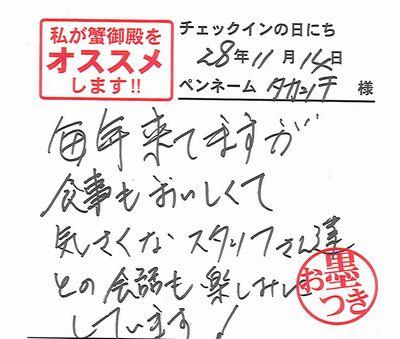 私が蟹御殿を
オススメ
します!!
チェックインの日にち
28年11月14日
ペンネーム タカッチ 様
毎年来てますが
食事もおいしくて
気さくなスタッフさん達
との会話も楽しみに
しています!
お墨
つき